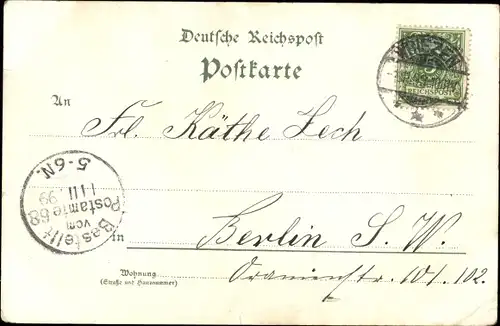 Deutsche Reichspost
Postkarte
WRIEZEN
REICHSPOST
An
Frl. Käthe Zech
5-6N.
1 11 99
Postamte 68
vom
Bestellt
in
Berlin S. W.
Wohnung
(Straße und Hausnummer)
Oranienstr. 101/102.